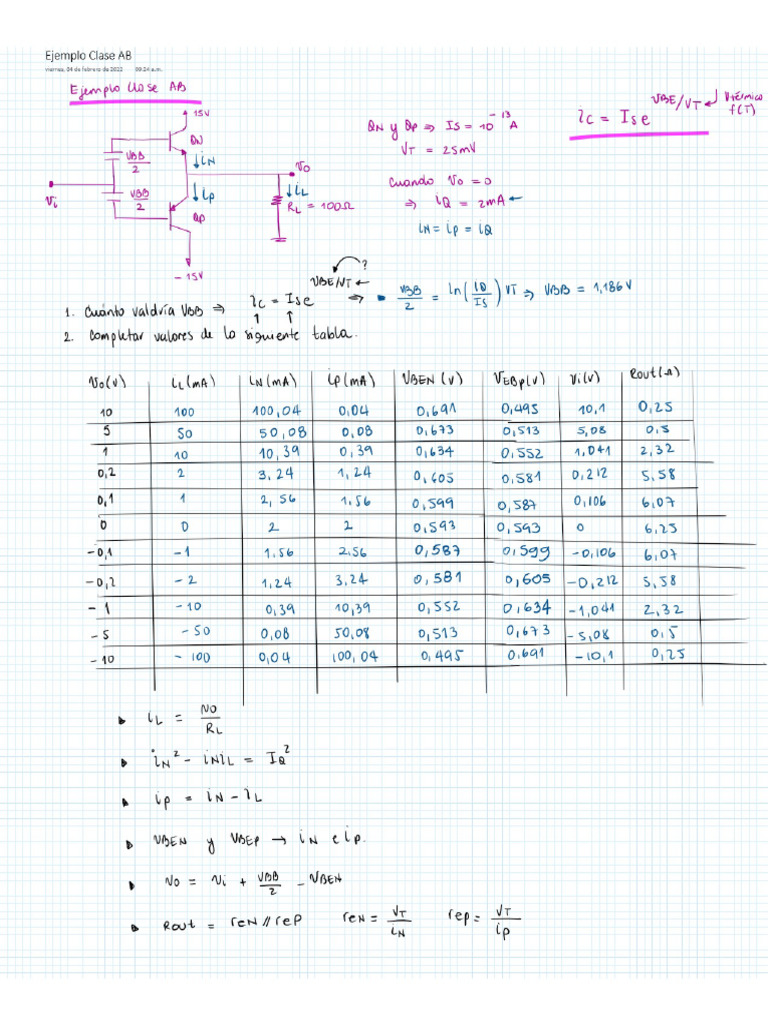 Ejemplo Clase AB
viernes, 04 de febrero de 2022 09:24 a.m.
Ejemplo Clase AB
15V
QN
VBB/2
iN
Vi
VBB/2
iP
QP
-15V
Vo
iL
RL = 100Ω
QN y QP ⇒ IS = 10^-13 A
VT = 25mV
Cuando Vo = 0
⇒ iQ = 2mA ←
iN = iP = iQ
iC = IS e^VBE/VT ← Vtérmico f(T)
1. Cuánto valdría VBB ⇒ iC = IS e^VBE/VT ← ? ⇒ VBB/2 = ln(IQ/IS) VT ⇒ VBB = 1,186 V
2. Completar valores de la siguiente tabla.
Vo(V) iL(mA) iN(mA) iP(mA) VBEN(V) VEBP(V) Vi(V) Rout(Ω)
10 100 100,04 0,04 0,691 0,495 10,1 0,25
5 50 50,08 0,08 0,673 0,513 5,08 0,5
1 10 10,39 0,39 0,634 0,552 1,041 2,32
0,2 2 3,24 1,24 0,605 0,581 0,212 5,58
0,1 1 2,56 1,56 0,599 0,587 0,106 6,07
0 0 2 2 0,593 0,593 0 6,25
-0,1 -1 1,56 2,56 0,587 0,599 -0,106 6,07
-0,2 -2 1,24 3,24 0,581 0,605 -0,212 5,58
-1 -10 0,39 10,39 0,552 0,634 -1,041 2,32
-5 -50 0,08 50,08 0,513 0,673 -5,08 0,5
-10 -100 0,04 100,04 0,495 0,691 -10,1 0,25
iL = Vo/RL
iN² - iN iL = IQ²
iP = iN - iL
VBEN y VBEP → iN e iP.
Vo = Vi + VBB/2 - VBEN
Rout = reN // reP reN = VT/iN reP = VT/iP